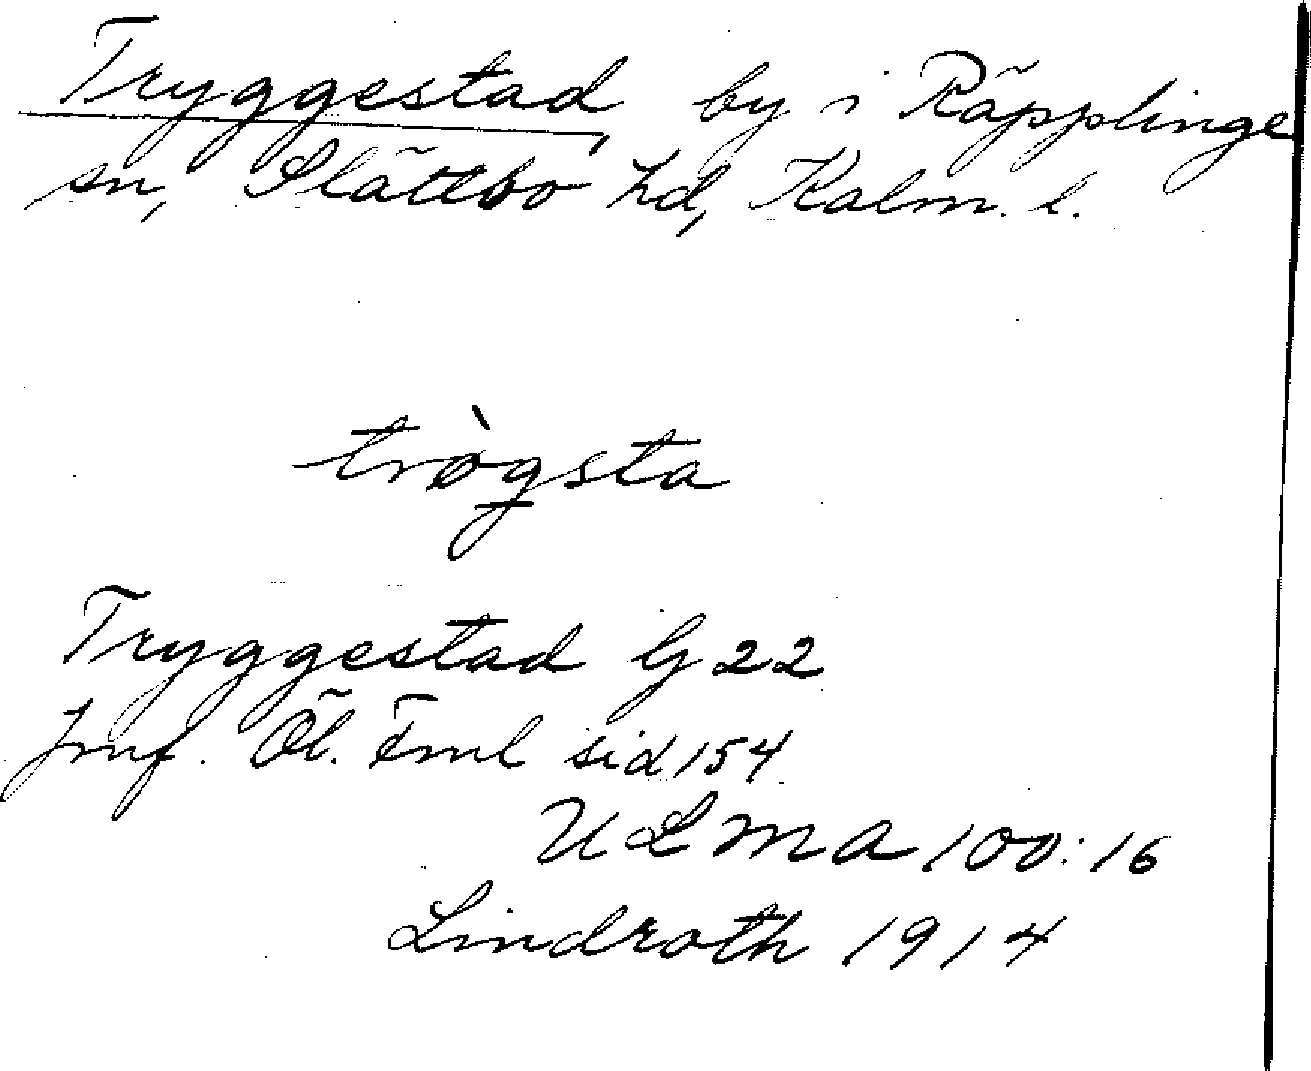 Tryggestad, by i Räpplinge
sn, Slättbo hd, Kalm. l.
trògsta
Tryggestad G 22
Jmf. Öl. Fml sid 154
ULMA 100:16
Lindroth 1914